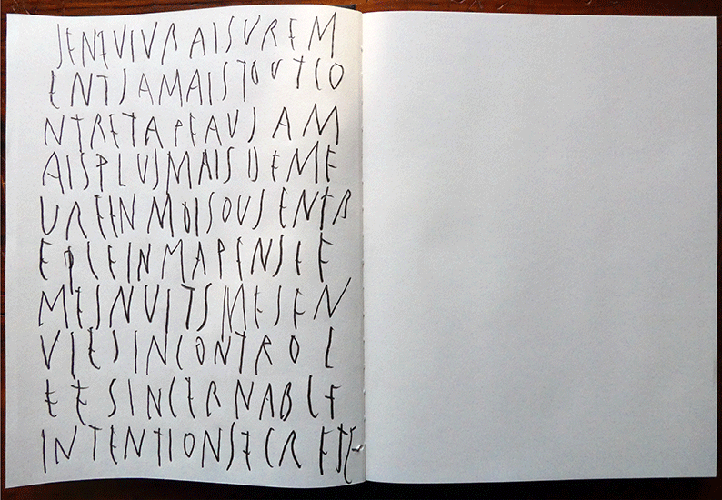 JENEVIVRAISUREM
ENTJAMAISTOUTCO
NTRETAPEAUJAM
AISPLUSMAISDEME
UREENMOISOUSENTR
EPLEINMAPENSEE
MESNUITSMESEN
VIESINCONTROL
EESINCERNABLE
INTENTIONSECRETE